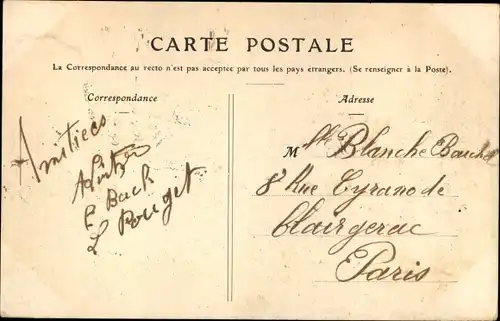 CARTE POSTALE
La Correspondance au recto n'est pas acceptée par tous les pays étrangers. (Se renseigner à la Poste).
Correspondance
Amitiées
E Back
L Pouget
Adresse
M lle Blanche
8 Rue Cyrano de
Clairgerac
Paris